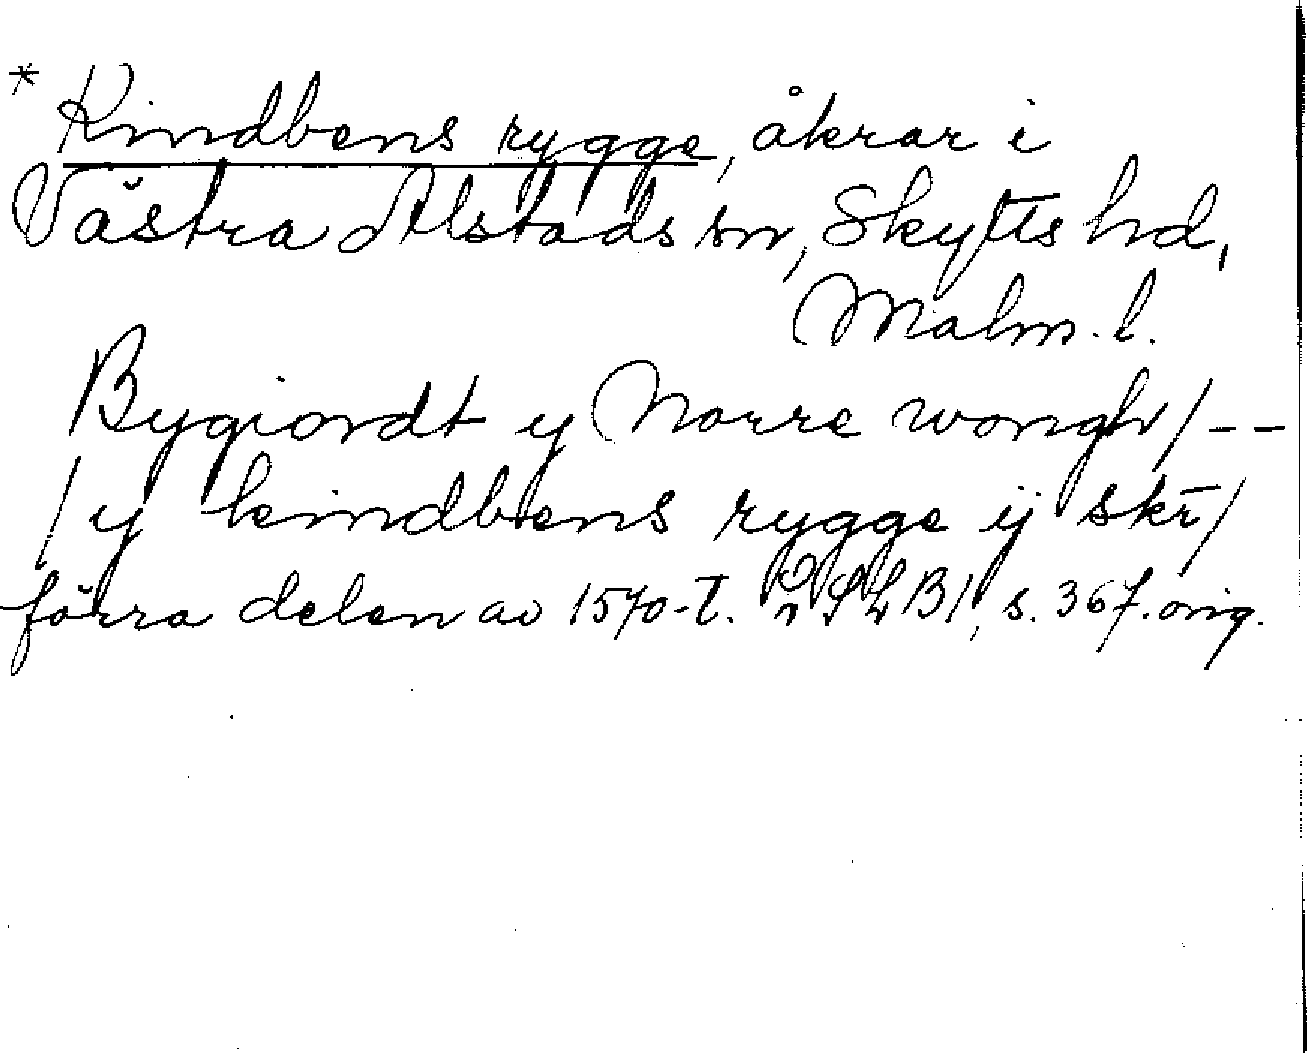 * Kindbens rygge, åkrar i
Västra Alstads sn, Skytts hd,
Malm. l.
Bygiordt y Norre wongh / --
/ y kindbens rygge ij skr̄ /
förra delen av 1570-t. LB1, s. 367. orig.